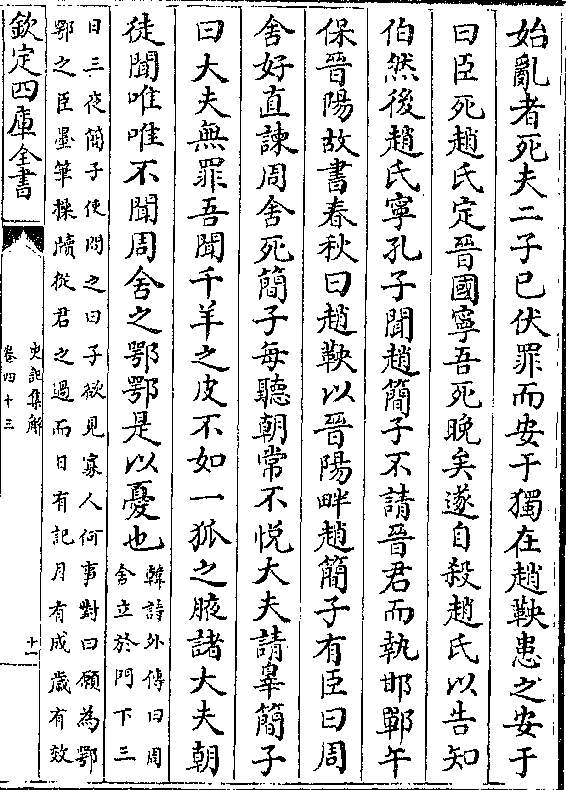 始亂者死夫二子已伏罪而安于獨在趙鞅患之安于
曰臣死趙氏定晉國寧吾死晚矣遂自殺趙氏以告知
伯然後趙氏寧孔子聞趙簡子不請晉君而執邯鄲午
保晉陽故書春秋曰趙鞅以晉陽畔趙簡子有臣曰周
舍好直諫周舍死簡子每聽朝常不悦大夫請辠簡子
曰大夫無罪吾聞千羊之皮不如一狐之腋諸大夫朝
徒聞唯唯不聞周舍之鄂鄂是以憂也
韓詩外傳曰周
舍立於門下三
日三夜簡子使問之曰子欲見寡人何事對曰願為鄂
鄂之臣墨筆操牘從君之過而日有記月有成歲有效
欽定四庫全書
史記集解
卷四十三
十一